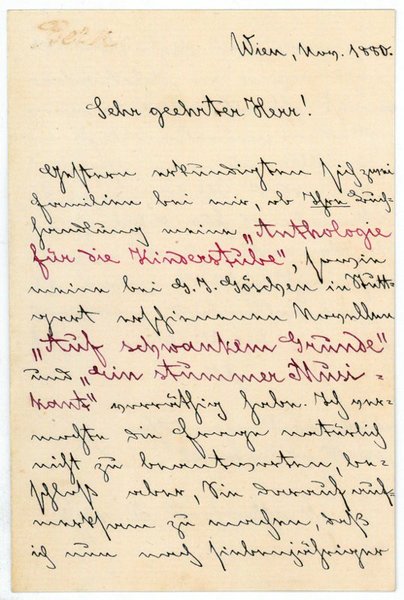 Wien, Nov. 1880.
Sehr geehrter Herr!
Gestern erkundigten sich zwei
Familien bei mir, ob Ihre Buch-
handlung meine „Anthologie
für die Kinderstube“, sowie
meine bei G. J. Göschen in Stutt-
gart erschienenen Novellen
„Auf schwankem Grunde“
und „Ein stummer Musi-
kant“ vorräthig habe. Ich ver-
mochte die Frage natürlich
nicht zu beantworten, be-
schloß aber, Sie darauf auf-
merksam zu machen, daß
ich nun nach siebenjähriger